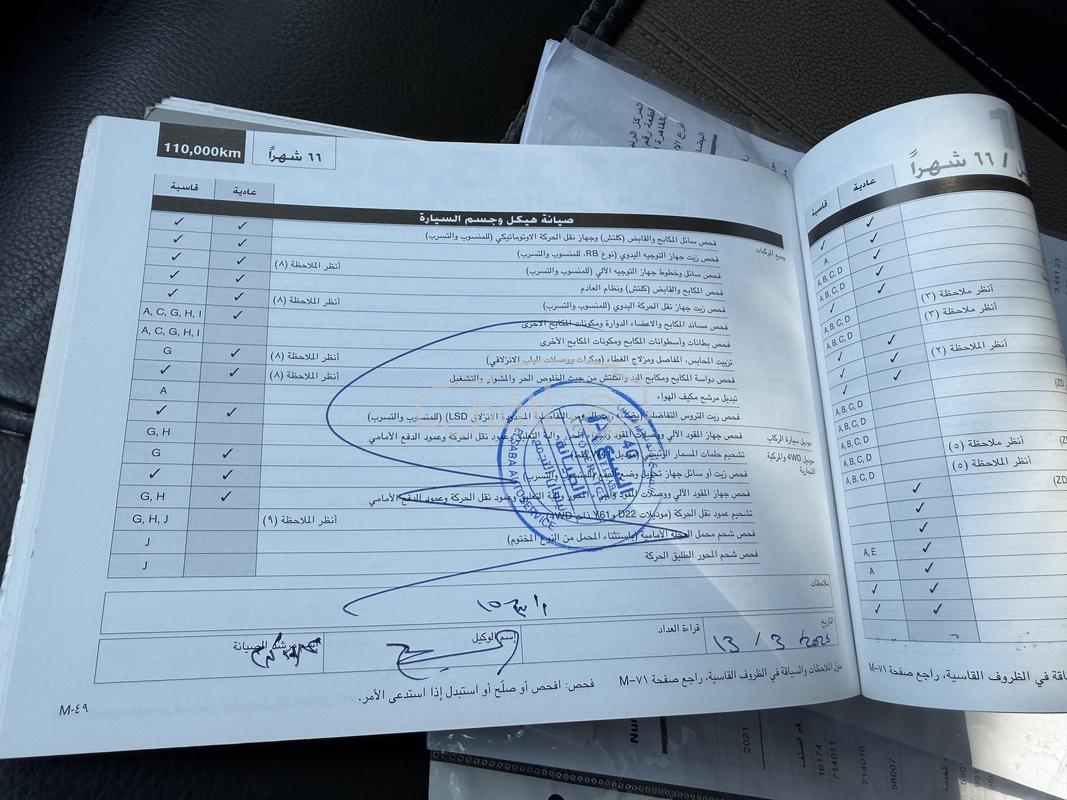 110,000km
٦٦ شهراً
عادية
قاسية
صيانة هيكل وجسم السيارة
جميع المركبات
فحص سائل المكابح والقابض (كلتش) وجهاز نقل الحركة الاوتوماتيكي (للمنسوب والتسرب)
فحص زيت جهاز التوجيه اليدوي (نوع RB، للمنسوب والتسرب)
فحص سائل وخطوط جهاز التوجيه الآلي (للمنسوب والتسرب) أنظر الملاحظة (٨)
فحص المكابح والقابض (كلتش) ونظام العادم
فحص زيت جهاز نقل الحركة اليدوي (للمنسوب والتسرب) أنظر الملاحظة (٨)
فحص مساند المكابح والاعضاء الدوارة ومكونات المكابح الأخرى A, C, G, H, I
فحص بطانات وأسطوانات المكابح ومكونات المكابح الأخرى A, C, G, H, I
تزييت المحابس، المفاصل ومزلاج الغطاء (وبكرات ووصلات الباب الانزلاقي) أنظر الملاحظة (٨) G
فحص دواسة المكابح ومكابح اليد والكلتش من حيث الخلوص الحر والمشوار والتشغيل أنظر الملاحظة (٨)
تبديل مرشح مكيف الهواء A
فحص زيت التروس التفاضلية المحدودة الانزلاق LSD) (للمنسوب والتسرب)
موديل سيارة الركاب
فحص جهاز المقود الآلي ووصلات المقود وعمود نقل الحركة وعمود الدفع الأمامي G, H
موديل 4WD والمركبة التجارية
تشحيم حلمات المسمار الرئيسي G
فحص زيت أو سائل جهاز تحويل
فحص جهاز المقود الآلي ووصلات المقود وعمود نقل الحركة وعمود الدفع الأمامي G, H
تشحيم عمود نقل الحركة (موديلات D22 و Y61 ذات 4WD) أنظر الملاحظة (٩) G, H, J
فحص شحم محمل العجلة الأمامية (باستثناء المحمل من النوع المختوم) J
فحص شحم المحور الطليق الحركة J
ESABA AUTO SERVICE
ملاحظات
التاريخ
13 / 3 / 2025
قراءة العداد
إسم الوكيل
مرشد الصيانة
حول الملاحظات والسياقة في الظروف القاسية، راجع صفحة M-٧١
فحص: افحص أو صلّح أو استبدل إذا استدعى الأمر.
M-٤٩
/ ٦٦ شهراً
عادية
قاسية
A
A, B, C, D
A, B, C, D
أنظر ملاحظة (٣)
أنظر ملاحظة (٣)
A, B, C, D
أنظر ملاحظة (٢)
A, B, C, D
A, B, C, D
A, B, C, D
أنظر ملاحظة (٥)
A, B, C, D
أنظر ملاحظة (٥)
A, B, C, D
A, E
A
في الظروف القاسية، راجع صفحة M-٧١
2021
رقم الصنف
16174
714011
714016
58007